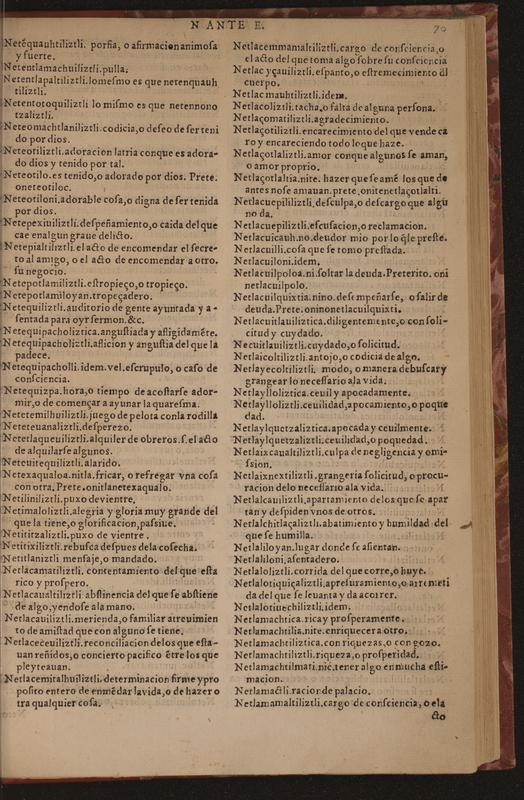 N ANTE E.
70
Netēquauhtiliztli. porfia, o afirmacion animosa
y fuerte.
Netentlamachuiliztli. pulla.
Netentlapaltiliztli. lo mesmo es que netenquauh
tiliztli.
Netentotoquiliztli lo mismo es que netennono
tzaliztli.
Neteomachtlaniliztli. codicia, o deseo de ser teni
do por dios.
Neteotiliztli. adoracion latria conque es adora-
do dios y tenido por tal.
Neteotilo. es tenido, o adorado por dios. Prete.
oneteotiloc.
Neteotiloni. adorable cosa, o digna de ser tenida
por dios.
Netepexiuiliztli. despeñamiento, o caida del que
cae en algun graue delicto.
Netepialtiliztli. el acto de encomendar el secre-
to al amigo, o el acto de encomendar a otro.
su negocio.
Netepotlamiliztli. estropieço, o tropieço.
Netepotlamiloyan. tropeçadero.
Netequiliztli. auditorio de gente ayuntada y a-
sentada para oyr sermon. &c.
Netequipacholiztica. angustiada y afligidaméte.
Netequipacholiztli. aflicion y angustia del que la
padece.
Netequipacholli. idem. vel. escrupulo, o caso de
consciencia.
Netequizpa. hora, o tiempo de acostarse a dor-
mir, o de començar a ayunar la quaresma.
Netetemilhuiliztli. juego de pelota conla rodilla
Neteteuanaliztli. desperezo.
Netetlaqueuiliztli. alquiler de obreros. s. el acto
de alquilarse algunos.
Neteuitequiliztli. alarido.
Netexaqualoa. nitla. fricar, o refregar vna cosa
con otra. Prete. onitlanetexaqualo.
Netiliniliztli. puxo de vientre.
Netimaloliztli. alegria y gloria muy grande del
que la tiene, o glorificacion, passiue.
Netititzaliztli. puxo de vientre.
Netitixiliztli. rebusca despues dela cosecha.
Netitlaniztli mensaje, o mandado.
Netlacamatiliztli. contentamiento del que esta
rico y prospero.
Netlacaualtiliztli abstinencia del que se abstiene
de algo, yendose ala mano.
Netlacauiliztli. merienda, o familiar atreuimien
to de amistad que con alguno se tiene.
Netlaceceuiliztli. reconciliacion delos que esta-
uan reñidos, o concierto pacifico être los que
pleyteauan.
Netlacemitalhuiliztli. determinacion firme y pro
posito entero de enmēdar la vida, o de hazer o
tra qualquier cosa.
Netlacemmamaltiliztli. cargo de consciencia, o
el acto del que toma algo sobre su consciencia
Netlacyçauiliztli. espanto, o estremecimiento dl
cuerpo.
Netlacmauhtiliztli. idem.
Netlacoliztli. tacha, o falta de alguna persona.
Netlaçomatiliztli. agradecimiento.
Netlaçotiliztli. encarecimiento del que vende ca
ro y encareciendo todo lo que haze.
Netlaçotlaliztli. amor conque algunos se aman,
o amor proprio.
Netlaçotlaltia. nite. hazer que se amē los que de
antes no se amauan. prete. onitenetlaçotlalti.
Netlacuepililiztli. desculpa, o descargo que algu
no da.
Netlacuepiliztli. escusacion, o reclamacion.
Netlacuicauh. no. deudor mio por lo q̄ le preste.
Netlacuilli. cosa que se tomo prestada.
Netlacuiloni. idem.
Netlacuilpoloa. ni. soltar la deuda. Preterito. oni
netlacuilpolo.
Netlacuilquixtia. nino. desempeñarse, o salir de
deuda. Prete. oninonetlacuilquixti.
Netlacuitlauiliztica. diligentemente, o con soli-
citud y cuydado.
Necuitlauiliztli. cuydado, o solicitud.
Netlaicoltiliztli. antojo, o codicia de algo.
Netlayecoltiliztli. modo, o manera de buscar y
grangear lo necessario ala vida.
Netlaylloliztica. ceuil y apocadamente.
Netlaylloliztli. ceuilidad, apocamiento, o poque
dad.
Netlaylquetzaliztica. apocada y ceuilmente.
Netlaylquetzaliztli. ceuilidad, o poquedad.
Netlaixcaualtiliztli. culpa de negligencia y omi-
ssion.
Netlaixnextiliztli. grangeria solicitud, o procu-
racion delo necessario ala vida.
Netlalcauiliztli, apartamiento delos que se apar
tan y despiden vnos de otros.
Netlalchitlaçaliztli. abatimiento y humildad del
que se humilla.
Netlaliloyan. lugar donde se assientan.
Netlaliloni, assentadero.
Netlaloliztli. corrida del que corre, o huye.
Netlalotiquiçaliztli, apresuramiento, o arremeti
da del que se leuanta y da a correr.
Netlalotiuechiliztli. idem.
Netlamachtica. rica y prosperamente.
Netlamachtilia, nite. enriquecer a otro.
Netlamachtiliztica. con riquezas, o con gozo.
Netlamachtiliztli. riqueza, o prosperidad.
Netlamachtilmati. nic. tener algo en mucha esti-
macion.
Netlamactli. racion de palacio.
Netlamamaltiliztli. cargo de consciencia, o ela
cto